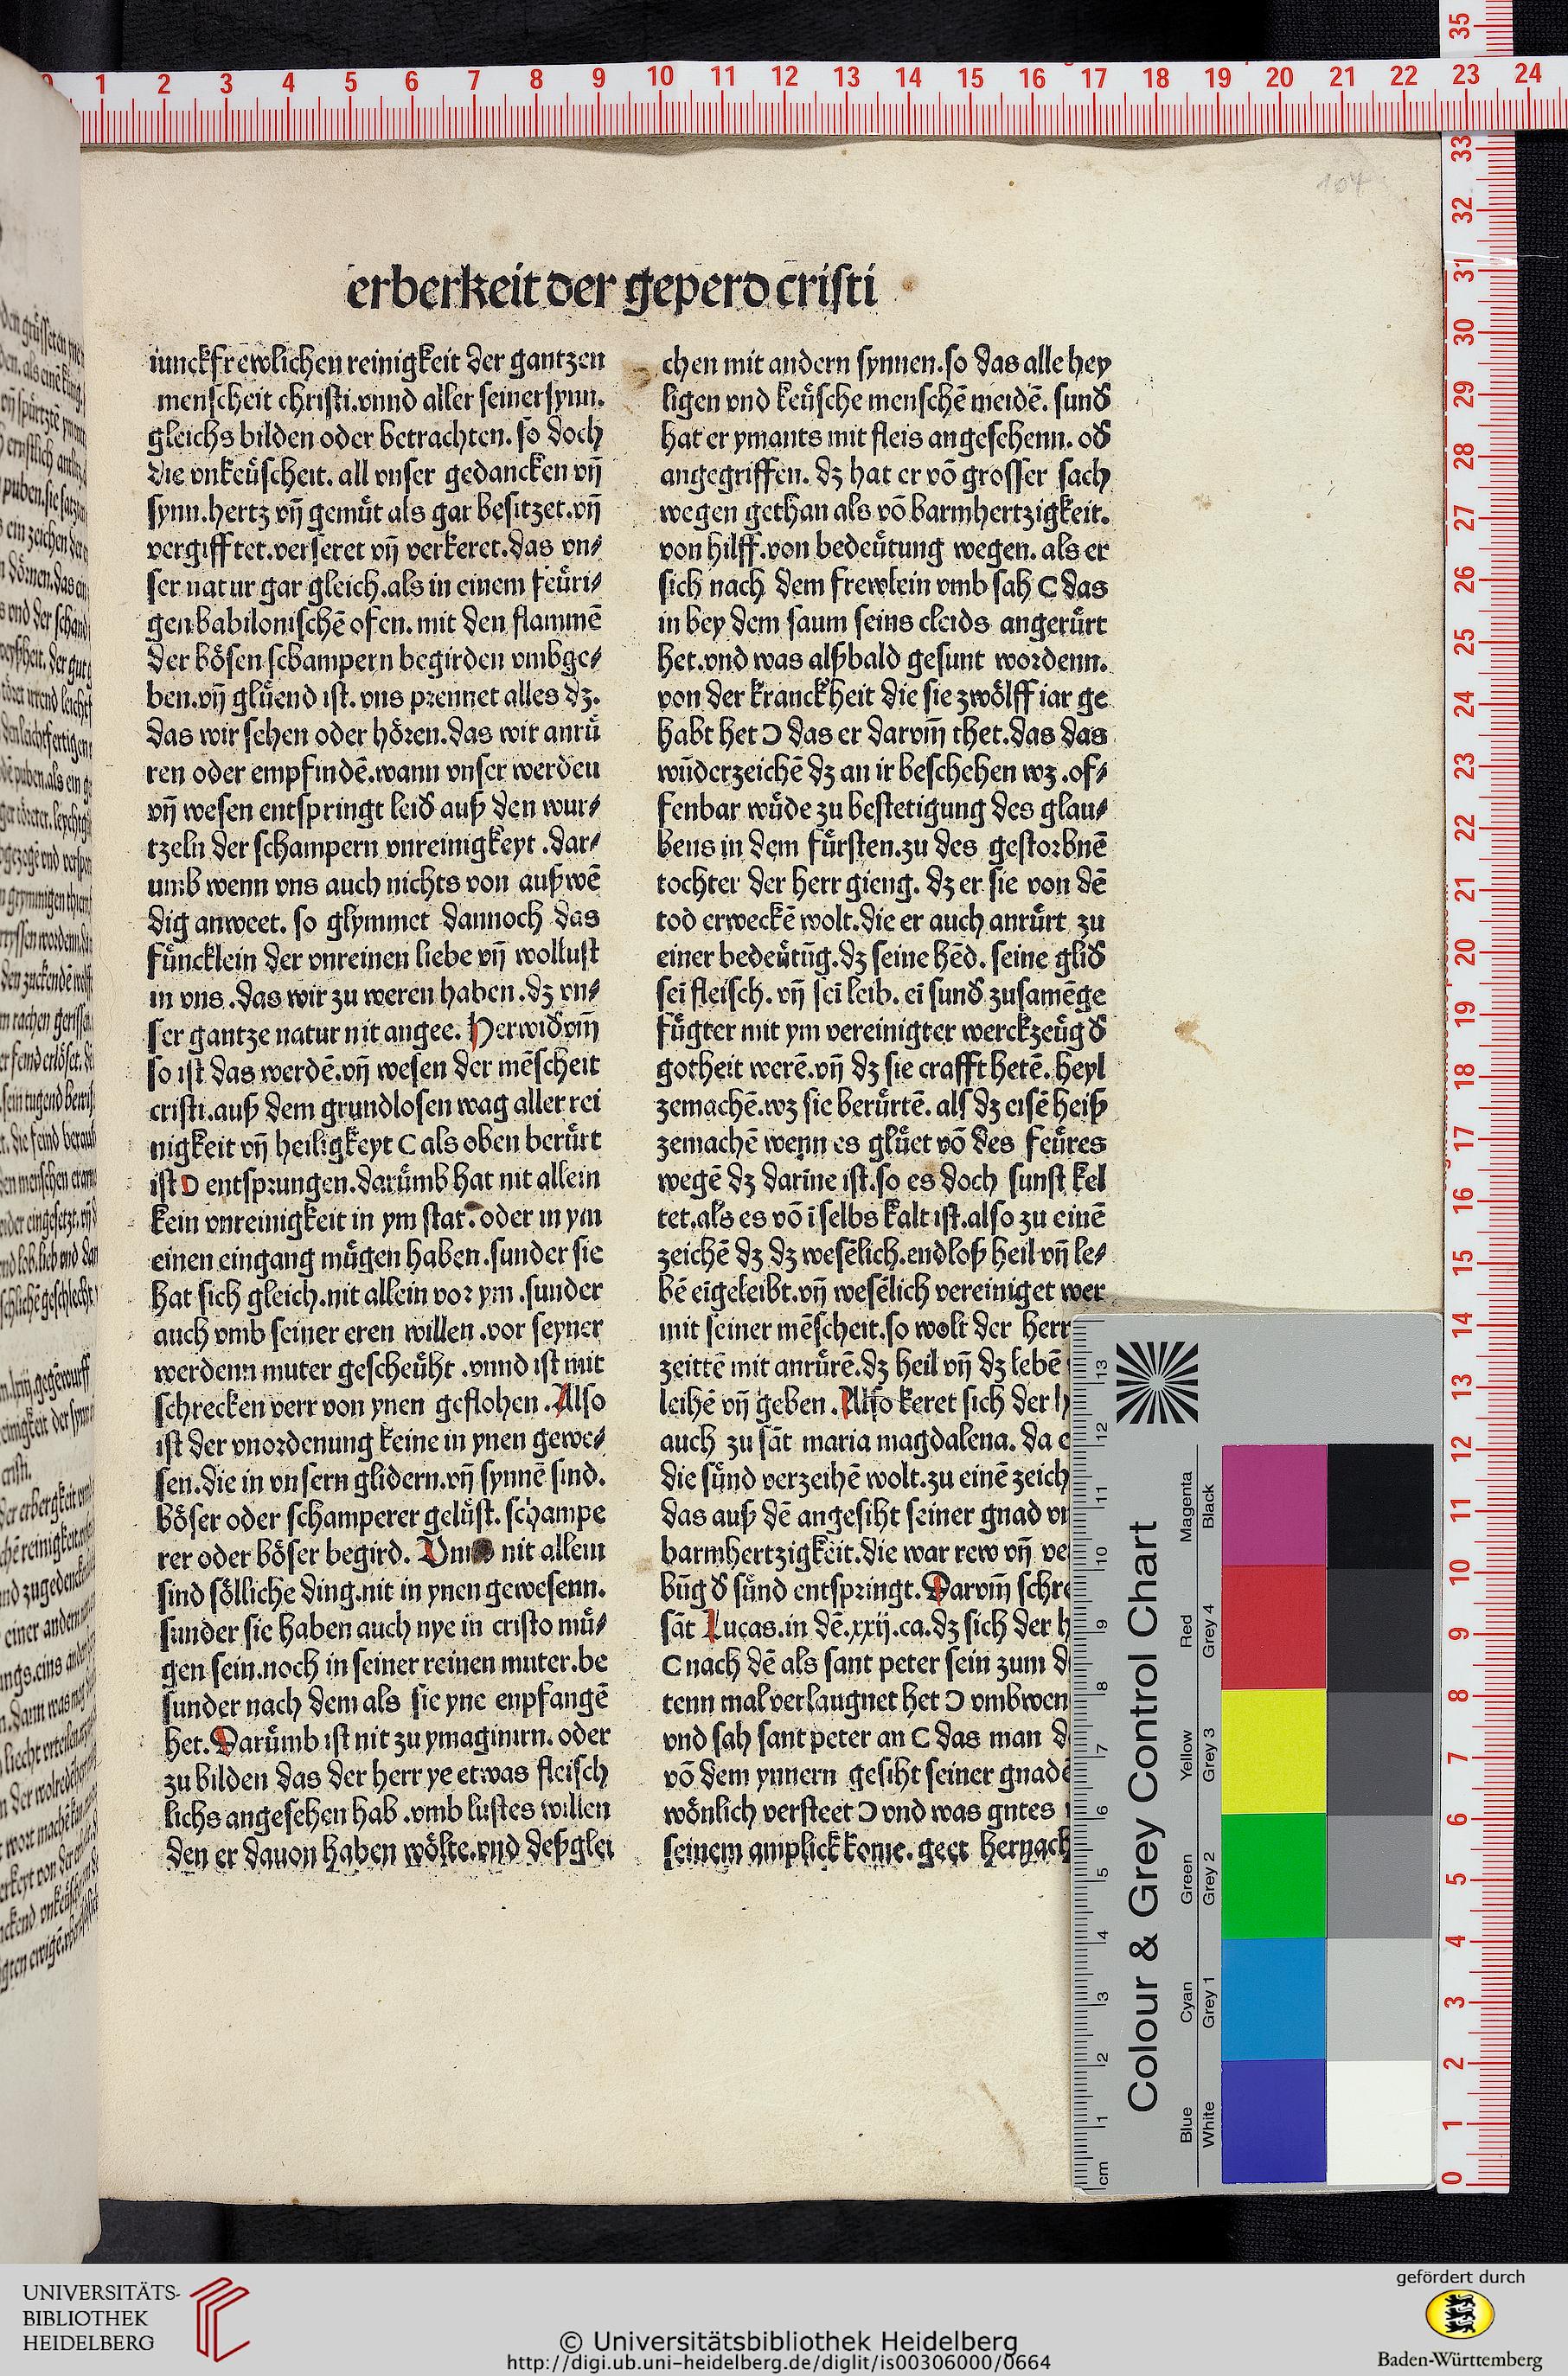 104
erberkeit der geperd cristi
iunckfrewlichen reinigkeit der gantzen
menscheit christi.vnnd aller seiner synn.
gleichs bilden oder betrachten. so doch
die vnkeuͤscheit. all vnser gedancken vñ
synn.hertz vñ gemuͤt als gar besitzet.vñ
vergifftet.verseret vñ verkeret.das vn⸗
ser natur gar gleich.als in einem feuͤri⸗
gen babilonischē ofen. mit den flammē
der boͤsen schampern begirden vmbge⸗
ben.vñ gluͤend ist. vns prennet alles dz.
das wir sehen oder hoͤren.das wir anruͤ
ren oder empfindē.wann vnser werden
vñ wesen entspringt leid auß den wur⸗
tzeln der schampern vnreinigkeyt .dar⸗
umb wenn vns auch nichts von außwē
dig anweet. so glymmet dannoch das
fuͤncklein der vnreinen liebe vñ wollust
in vns .das wir zu weren haben.dz vn⸗
ser gantze natur nit angee. Herwiđvm̄
so ist das werdē.vñ wesen der mēscheit
cristi.auß dem grundlosen wag aller rei
nigkeit vñ heiligkeyt C als oben beruͤrt
ist Ɔ entsprungen.daruͤmb hat nit allein
kein vnreinigkeit in ym stat. oder in ym
einen eingang muͤgen haben.sunder sie
hat sich gleich.nit allein vor ym .sunder
auch vmb seiner eren willen .vor seyner
werdenn muter gescheuͤht .vnnd ist mit
schrecken verr von ynen geflohen .Also
ist der vnordenung keine in ynen gewe⸗
sen.die in vnsern glidern.vñ synnē sind.
boͤser oder schamperer geluͤst. schampe
rer oder boͤser begird. nit allein
sind soͤlliche ding.nit in ynen gewesenn.
sunder sie haben auch nye in cristo muͤ⸗
gen sein.noch in seiner reinen muter.be
sunder nach dem als sie yne enpfangē
het.Daruͤmb ist nit zu ymaginirn. oder
zu bilden das der herr ye etwas fleisch
lichs angesehen hab .vmb lustes willen
den er dauon haben woͤlte.vnd deßglei
chen mit andern synnen.so das alle hey
ligen vnd keuͤsche menschē meidē. sunđ
hat er ymants mit fleis angesehenn. ođ
angegriffen. dz hat er vō grosser sach
wegen gethan als vō barmhertzigkeit.
von hilff.von bedeuͤtung wegen. als er
sich nach dem frewlein vmb sah C das
in bey dem saum seins cleids angeruͤrt
het.vnd was alßbald gesunt wordenn.
von der kranckheit die sie zwoͤlff iar ge
habt het Ɔ das er darvm̄ thet.das das
wūderzeichē dz an ir beschehen wz .of⸗
fenbar wuͤde zu bestetigung des glau⸗
bens in dem fuͤrsten.zu des gestorbnē
tochter der herr gieng. dz er sie von dē
tod erweckē wolt.die er auch anruͤrt zu
einer bedeuͤtūg.dz seine hēd. seine gliđ
sei fleisch. vñ sei leib. ei sunđ zusamēge
fuͤgter mit ym vereinigter werckzeuͤg đ
gotheit werē.vñ dz sie crafft hetē. heyl
zemachē.wz sie beruͤrtē. als dz eisē heiß
zemachē wenn es gluͤet vō des feuͤres
wegē dz darīne ist.so es doch sunst kel
tet.als es vō ī selbs kalt ist.also zu einē
zeichē dz dz wesēlich.endloß heil vñ le⸗
bē eīgeleibt.vñ wesēlich vereiniget wer
mit seiner mēscheit.so wolt der herr
zeittē mit anruͤrē.dz heil vñ dz lebē
leihē vñ geben .Also keret sich der
auch zu sāt maria magdalena. da
die suͤnd verzeihē wolt.zu einē zeich
das auß dē angesiht seiner gnad
barmhertzigkeit.die war rew vñ
būg đ suͤnd entspringt.Darvm̄
sāt Lucas.in dē.xxij.ca.dz sich der
C nach dē als sant peter sein zum
tenn mal verlaugnet het Ɔ vmbwen
vnd sah sant peter an C das man
vō dem ynnern gesiht seiner gnadē
woͤnlich versteet Ɔ vnd was gutes
seinem anplick kome. geet hernach
Colour & Grey Control Chart
Magenta Black
Red Grey 4
Yellow Grey 3
Green Grey 2
Cyan Grey 1
Blue White
cm 1 2 3 4 5 6 7 8 9 10 11 12 13
1 2 3 4 5 6 7 8 9 10 11 12 13 14 15 16 17 18 19 20 21 22 23 24
35
33
32
31
30
29
28
27
26
25
24
23
22
21
20
19
18
17
16
15
14
13
12
11
10
9
8
7
6
5
4
3
2
1
0
UNIVERSITÄTS-
BIBLIOTHEK
HEIDELBERG
© Universitätsbibliothek Heidelberg
http://digi.ub.uni-heidelberg.de/diglit/is00306000/0664
gefördert durch
Baden-Württemberg